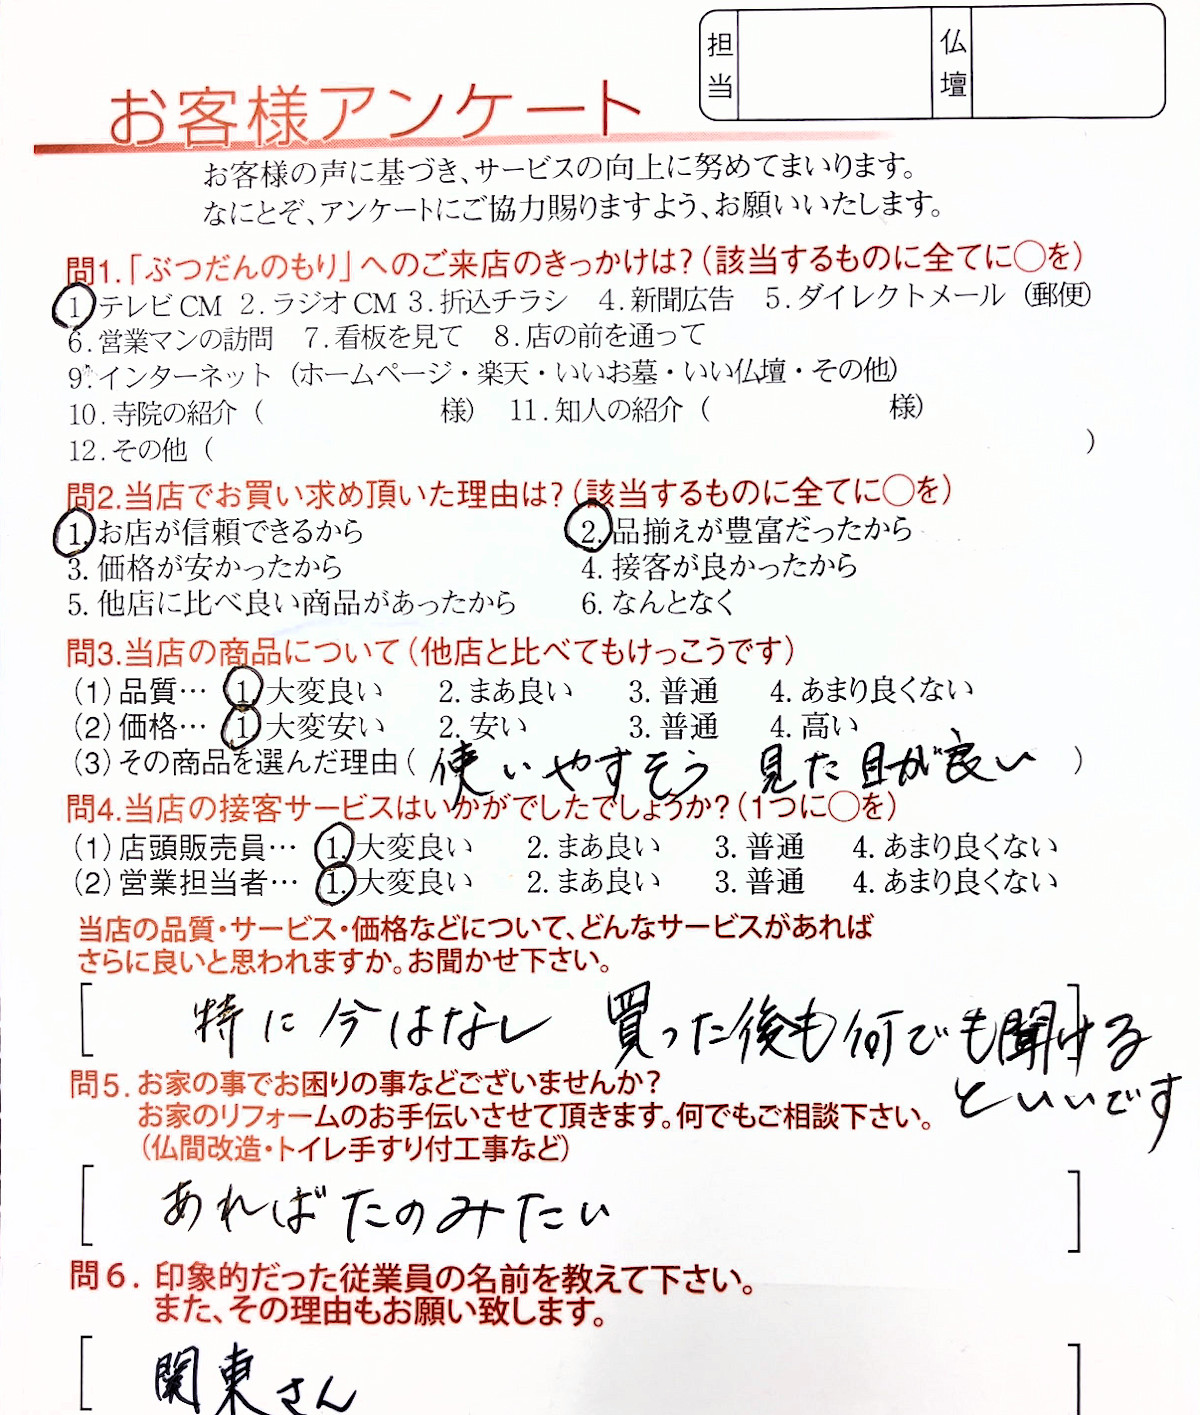 担当
仏壇
お客様アンケート
お客様の声に基づき、サービスの向上に努めてまいります。
なにとぞ、アンケートにご協力賜りますよう、お願いいたします。
問1.「ぶつだんのもり」へのご来店のきっかけは?(該当するものに全てに○を)
1.テレビCM 2.ラジオCM 3.折込チラシ 4.新聞広告 5.ダイレクトメール(郵便)
6.営業マンの訪問 7.看板を見て 8.店の前を通って
9.インターネット(ホームページ・楽天・いいお墓・いい仏壇・その他)
10.寺院の紹介( 様) 11.知人の紹介( 様)
12.その他( )
問2.当店でお買い求め頂いた理由は?(該当するものに全てに○を)
1.お店が信頼できるから 2.品揃えが豊富だったから
3.価格が安かったから 4.接客が良かったから
5.他店に比べ良い商品があったから 6.なんとなく
問3.当店の商品について(他店と比べてもけっこうです)
(1)品質… 1.大変良い 2.まあ良い 3.普通 4.あまり良くない
(2)価格… 1.大変安い 2.安い 3.普通 4.高い
(3)その商品を選んだ理由(使いやすそう 見た目が良い)
問4.当店の接客サービスはいかがでしたでしょうか?(1つに○を)
(1)店頭販売員… 1.大変良い 2.まあ良い 3.普通 4.あまり良くない
(2)営業担当者… 1.大変良い 2.まあ良い 3.普通 4.あまり良くない
当店の品質・サービス・価格などについて、どんなサービスがあれば
さらに良いと思われますか。お聞かせ下さい。
[特に今はなし 買った後も何でも聞ける]
といいです
問5.お家の事でお困りの事などございませんか?
お家のリフォームのお手伝いさせて頂きます。何でもご相談下さい。
(仏間改造・トイレ手すり付工事など)
[あればたのみたい]
問6.印象的だった従業員の名前を教えて下さい。
また、その理由もお願い致します。
[関東さん]